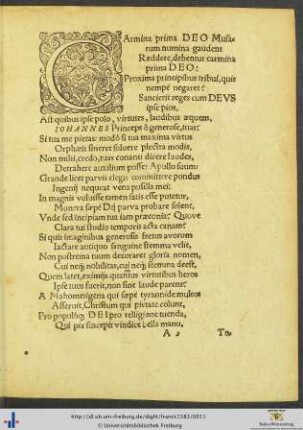 CArmina prima DEO Musarum
rum numina gaudent
Reddere, debentur carmina
prima DEO:
Proxima principibus tribui, quis
nempè negaret?
Sancierit reges cum DEVS
ipse pios.
Ast quibus ipse polo, virtutes, laudibus æquem,
IOHANNES Princeps ô generose, tuas?
Si tua me pietas modò si tua maxima virtus
Orphæis sineret soluere plectra modis,
Non mihi, credo, tuas conanti dicere laudes,
Detrahere auxilium posset Apollo suum:
Grande licet parvis elegis committere pondus
Ingenij nequeat vena pusilla mei:
In magnis voluisse tamen satis esse putetur,
Munera sæpè Dij parva probare solent,
Vnde sed incipiam tua iam præconia? Quove
Clara tui studio temporis acta canam?
Si quis imaginibus generosis fretus avorum
Iactare antiquo sanguine stemma velit,
Non postrema tuum decoraret gloria nomen,
Cui neq; nobilitas, cui neq; stemma deest,
Quem latet, eximijs quantus virtutibus heros
Ipse tuus fuerit, non sine laude parens?
A Mahometigena qui sæpè tyrannide multos
Asseruit, Christum qui pietate colunt,
Pro populóq; DEI pro religione tuenda,
Qui pia suscepit vindice bella manu,
A 2 To
http://dl.ub.uni-freiburg.de/diglit/franck1583/0011
© Universitätsbibliothek Freiburg
Baden-Württemberg